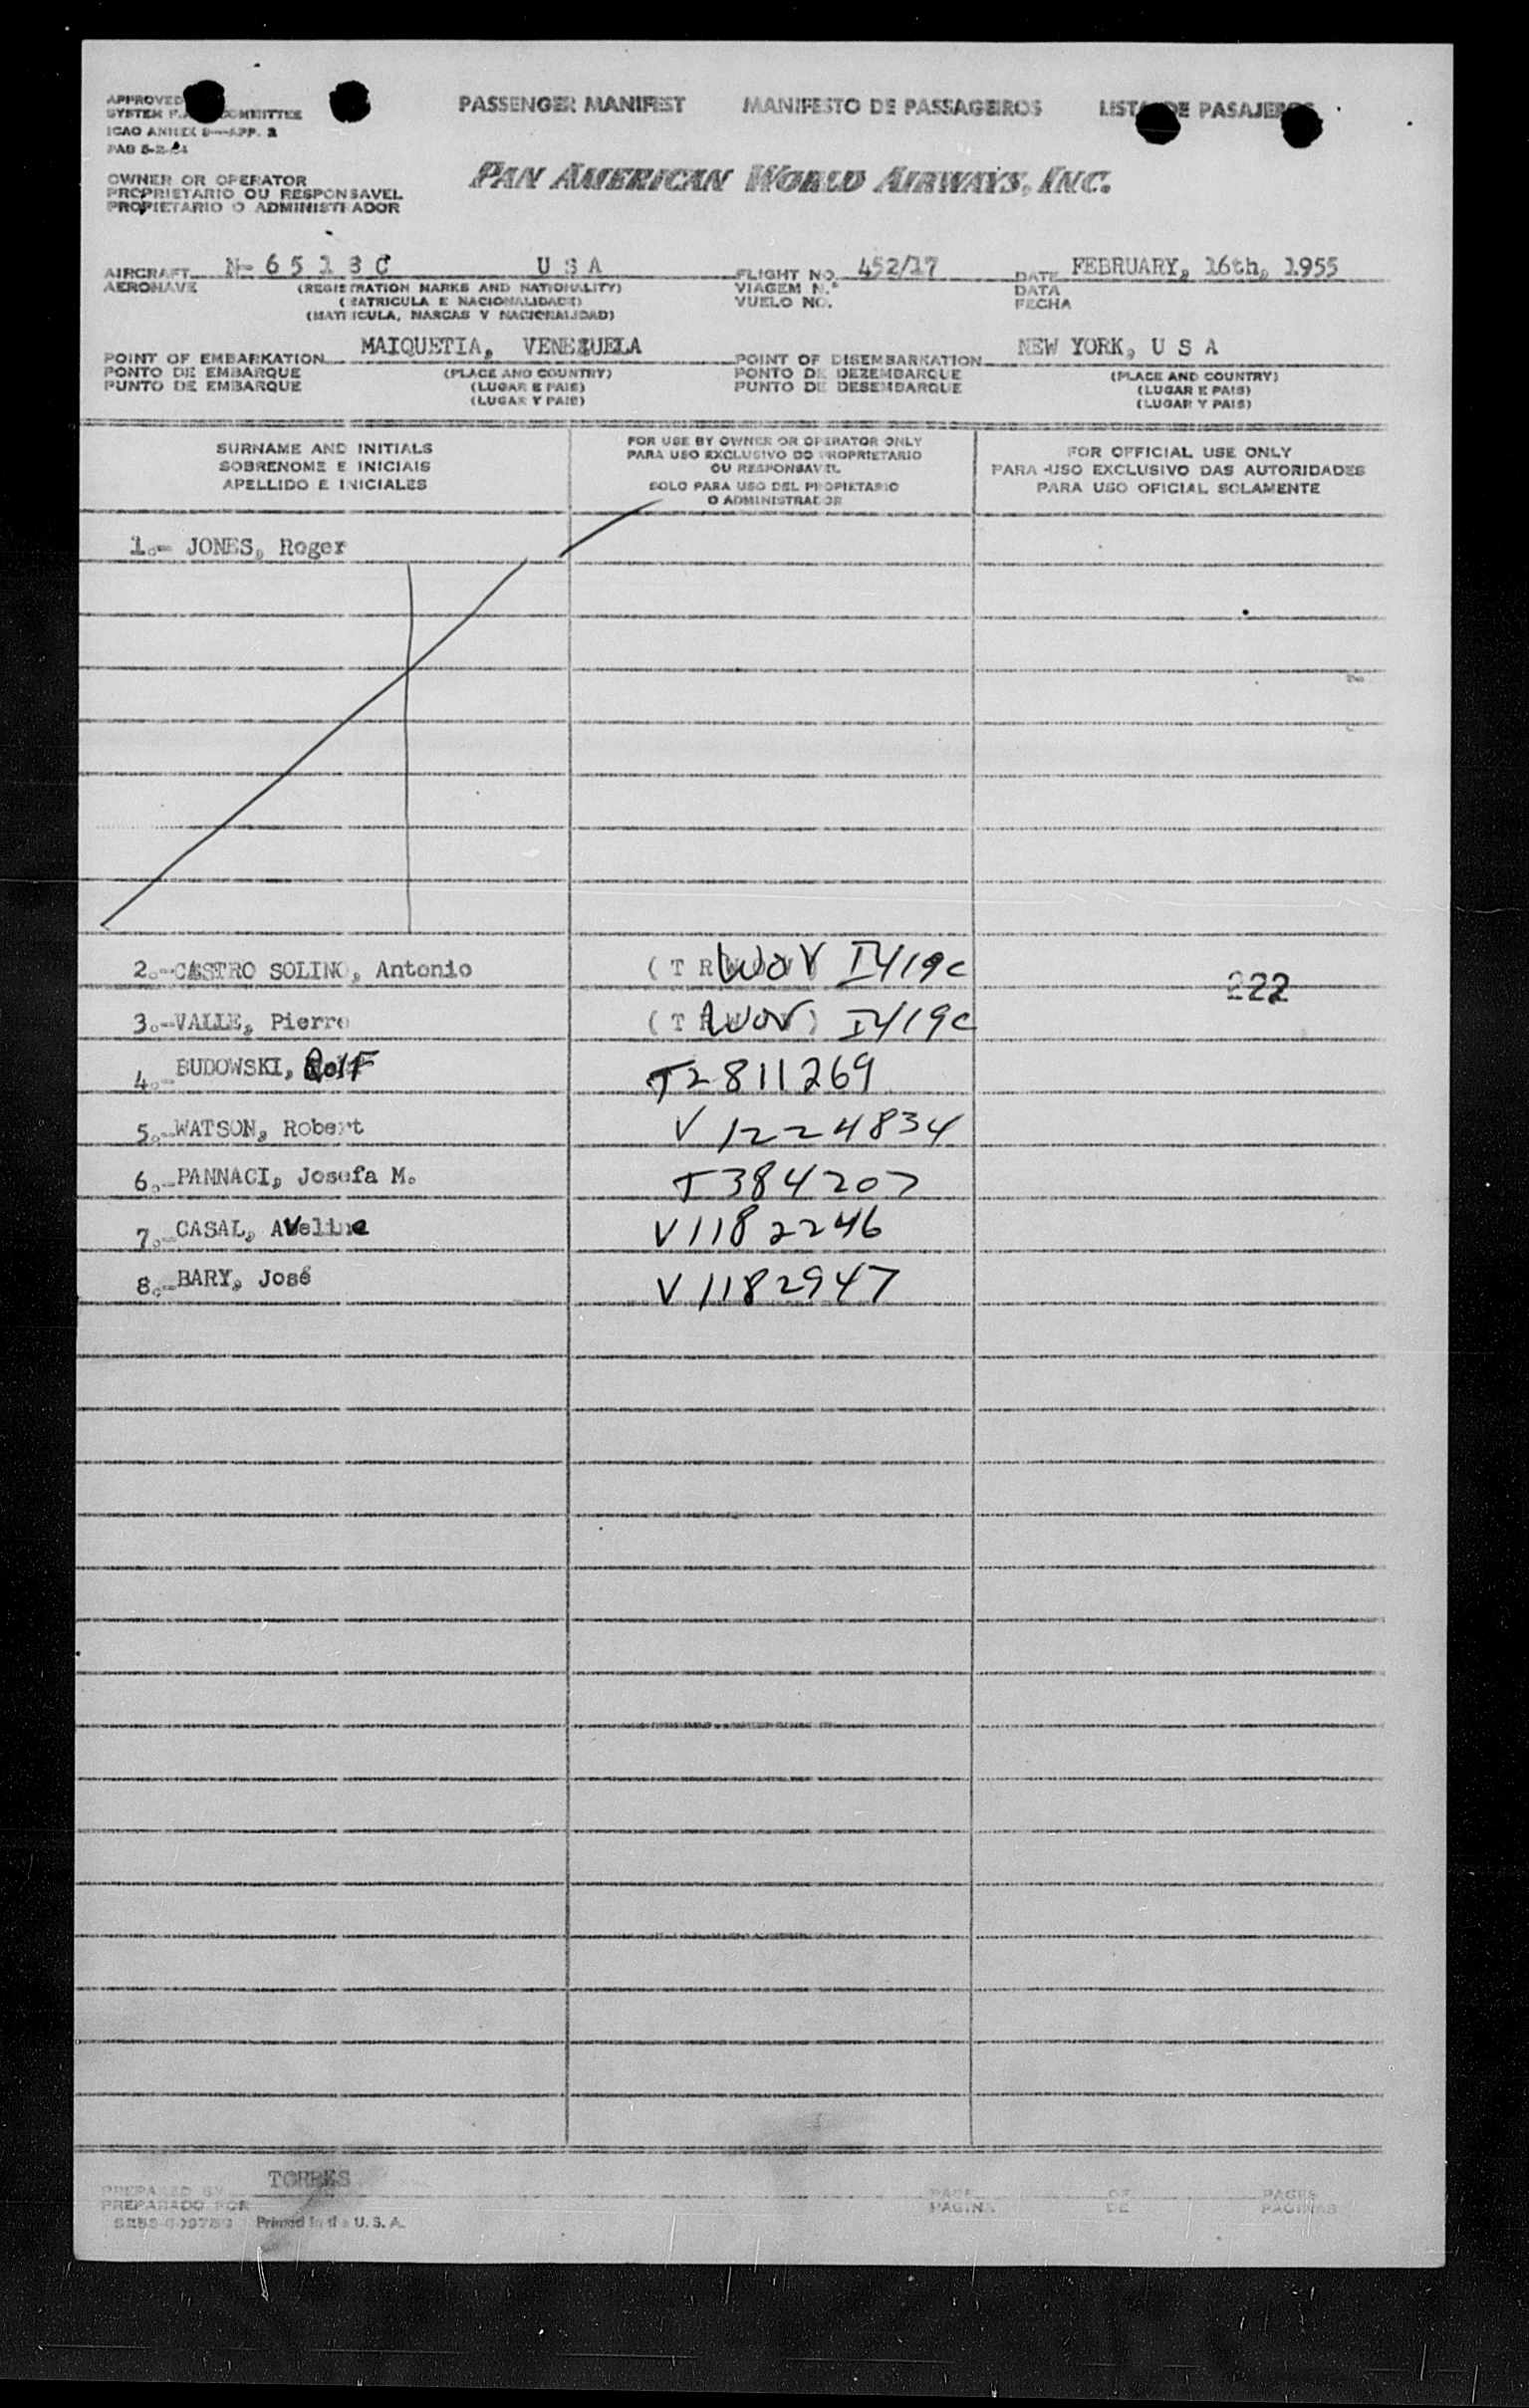 PASSENGER MANIFEST MANIFESTO DE PASSAGEIROS LISTA DE PASAJEROS
APPROVED
SYSTEM COMMITTEE
ICAO ANNEX 9—APP. 2
PAN AMERICAN WORLD AIRWAYS, INC.
OWNER OR OPERATOR
PROPRIETARIO OU RESPONSAVEL
PROPIETARIO O ADMINISTRADOR
AIRCRAFT N- 6 5 1 3 C U S A FLIGHT NO. 452/17 DATE FEBRUARY, 16th, 1955
AERONAVE (REGISTRATION MARKS AND NATIONALITY) VIAGEM N.º DATA
(MATRICULA E NACIONALIDADE) VUELO NO. FECHA
(MATRICULA, MARCAS Y NACIONALIDAD)
POINT OF EMBARKATION MAIQUETIA, VENEZUELA POINT OF DISEMBARKATION NEW YORK, U S A
PONTO DE EMBARQUE (PLACE AND COUNTRY) PONTO DE DEZEMBARQUE (PLACE AND COUNTRY)
PUNTO DE EMBARQUE (LUGAR E PAIS) PUNTO DE DESEMBARQUE (LUGAR E PAIS)
(LUGAR Y PAIS) (LUGAR Y PAIS)
SURNAME AND INITIALS
SOBRENOME E INICIAIS
APELLIDO E INICIALES
FOR USE BY OWNER OR OPERATOR ONLY
PARA USO EXCLUSIVO DO PROPRIETARIO
OU RESPONSAVEL
SOLO PARA USO DEL PROPIETARIO
O ADMINISTRADOR
FOR OFFICIAL USE ONLY
PARA USO EXCLUSIVO DAS AUTORIDADES
PARA USO OFICIAL SOLAMENTE
1.- JONES, Roger
2.- CASTRO SOLINO, Antonio (T R WOV I419c 222
3.- VALLE, Pierre (T R WOV) I419c
4.- BUDOWSKI, Rolf T2811269
5.- WATSON, Robert V1224834
6.- PANNACI, Josefa M. T384207
7.- CASAL, Aveline V1182246
8.- BARY, José V1182947
TORRES
PREPARED BY PAGE OF PAGES
PREPARADO POR PAGINA DE PAGINAS
Printed in the U. S. A.